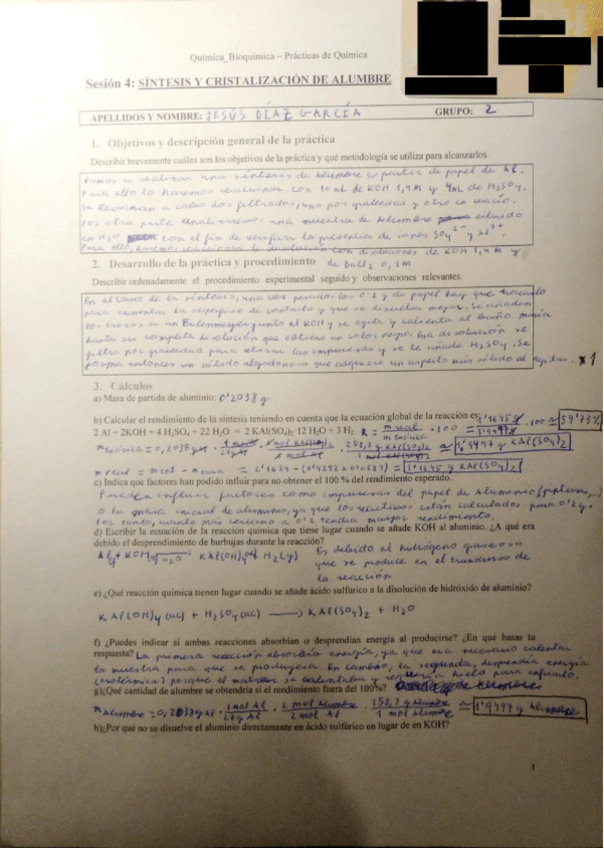 Química_Bioquímica – Prácticas de Química
Sesión 4: SÍNTESIS Y CRISTALIZACIÓN DE ALUMBRE
APELLIDOS Y NOMBRE: JESÚS DÍAZ GARCÍA GRUPO: 2
1. Objetivos y descripción general de la práctica
Describir brevemente cuáles son los objetivos de la práctica y qué metodología se utiliza para alcanzarlos.
Vamos a realizar una síntesis de Alumbre a partir de papel de Al.
Para ello lo haremos reaccionar con 10 mL de KOH 1,4 M y 4mL de H2SO4.
Se llevarán a cabo dos filtrados, uno por gravedad y otro en vacío.
Por otra parte analizaremos una muestra de Alumbre diluido
en H2O con el fin de verificar la presencia de iones SO4 2- y Al3+.
Para ello, haremos reaccionar la disolución con disoluciones de KOH 1,4 M y
de BaCl2 0,1M
2. Desarrollo de la práctica y procedimiento
Describir ordenadamente el procedimiento experimental seguido y observaciones relevantes.
En el caso de la síntesis, una vez pesados los 0'2 g de papel hay que trocearlo
para aumentar la superficie de contacto y que se disuelva mejor. Se añaden
los trozos en un Erlenmeyer junto al KOH y se agita y calienta al baño maría
hasta su completa disolución que obtiene un color negro. Esa disolución se
filtra por gravedad para retirar las impurezas y se le añade H2SO4. Se
forma entonces un sólido algodonoso que adquiere un aspecto más sólido al agitar. *1
3. Cálculos
a) Masa de partida de aluminio: 0'2038 g
b) Calcular el rendimiento de la síntesis teniendo en cuenta que la ecuación global de la reacción es:
2 Al + 2KOH + 4 H2SO4 + 22 H2O = 2 KAl(SO4)2·12 H2O + 3 H2 R = m real / m teórica · 100 = · 100 ≃ 59'73%
m teórica = 0,2038 g Al · 258,3 g KAl(SO4)2 / 1 mol KAl(SO4)2 ≃ 1'9497 g KAl(SO4)2
= 1'1645 g KAl(SO4)2
c) Indica que factores han podido influir para no obtener el 100 % del rendimiento esperado.
Pueden influir factores como impurezas del papel de Aluminio (pinturas,...)
o la masa inicial de aluminio, ya que los reactivos están calculados para 0'2 g.
Por tanto, cuanto más cercano a 0'2 tendrá mayor rendimiento.
d) Escribir la ecuación de la reacción química que tiene lugar cuando se añade KOH al aluminio. ¿A qué era
debido el desprendimiento de burbujas durante la reacción?
Es debido al hidrógeno gaseoso
que se produce en el transcurso de
la reacción
e) ¿Qué reacción química tienen lugar cuando se añade ácido sulfúrico a la disolución de hidróxido de aluminio?
KAl(OH)4 (ac) + H2SO4 (ac) ⟶ KAl(SO4)2 + H2O
f) ¿Puedes indicar si ambas reacciones absorbían o desprendían energía al producirse? ¿En qué basas tu
respuesta? La primera reacción absorbía energía, ya que era necesario calentar
la muestra para que se produjera. En cambio, la segunda, desprendía energía
(exotérmica) porque el matraz se calentaba y requería hielo para enfriarlo.
g)¿Qué cantidad de alumbre se obtendría si el rendimiento fuera del 100%?
m Alumbre = 0,2038 g Al · 1 mol Al / 27 g Al · 2 mol Alumbre / 2 mol Al · 258,3 g Alumbre / 1 mol Alumbre ≃ 1'9497 g Alumbre
h)¿Por qué no se disuelve el aluminio directamente en ácido sulfúrico en lugar de en KOH?
1